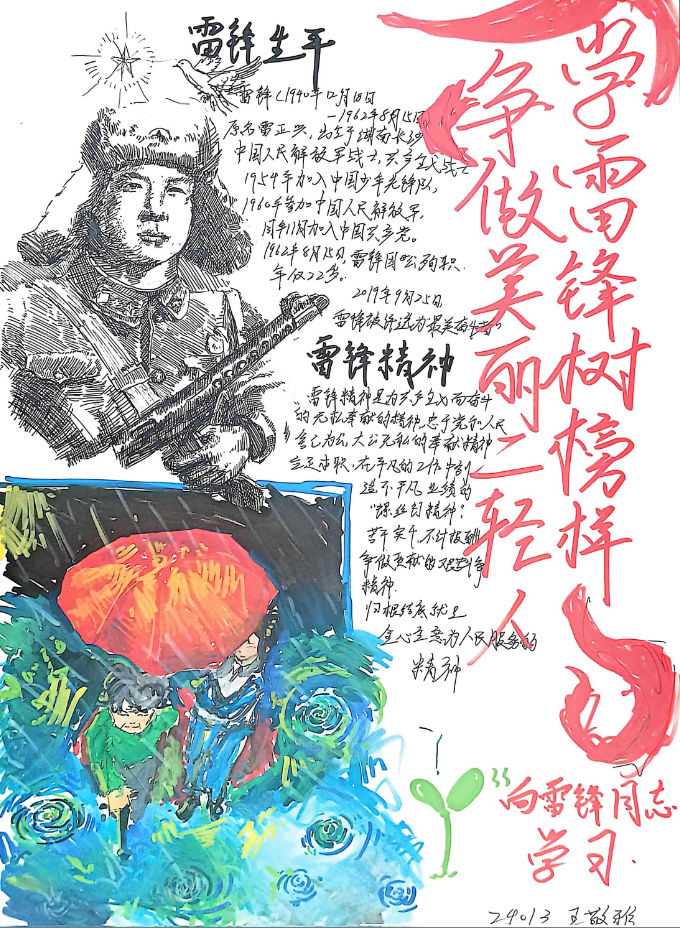 学雷锋树榜样
争做美丽二轻人
雷锋生平
雷锋（1940年12月18日
—1962年8月15日
原名雷正兴，出生于湖南长沙
中国人民解放军战士，共产主义战士
1954年加入中国少年先锋队，
1960年参加中国人民解放军，
同年11月加入中国共产党。
1962年8月15日，雷锋因公殉职，
年仅22岁。
2019年9月25日
雷锋被评选为"最美奋斗者"
雷锋精神
雷锋精神是为共产主义而奋斗
的无私奉献的精神，忠于党和人民
舍己为公，大公无私的奉献精神
立足本职，在平凡的工作中创
造不平凡业绩的
"螺丝钉精神"
苦干实干，不计报酬
争做贡献的艰苦奋斗
精神
归根结底就是
全心全意为人民服务的
精神
向雷锋同志
学习
24013 王敬雅